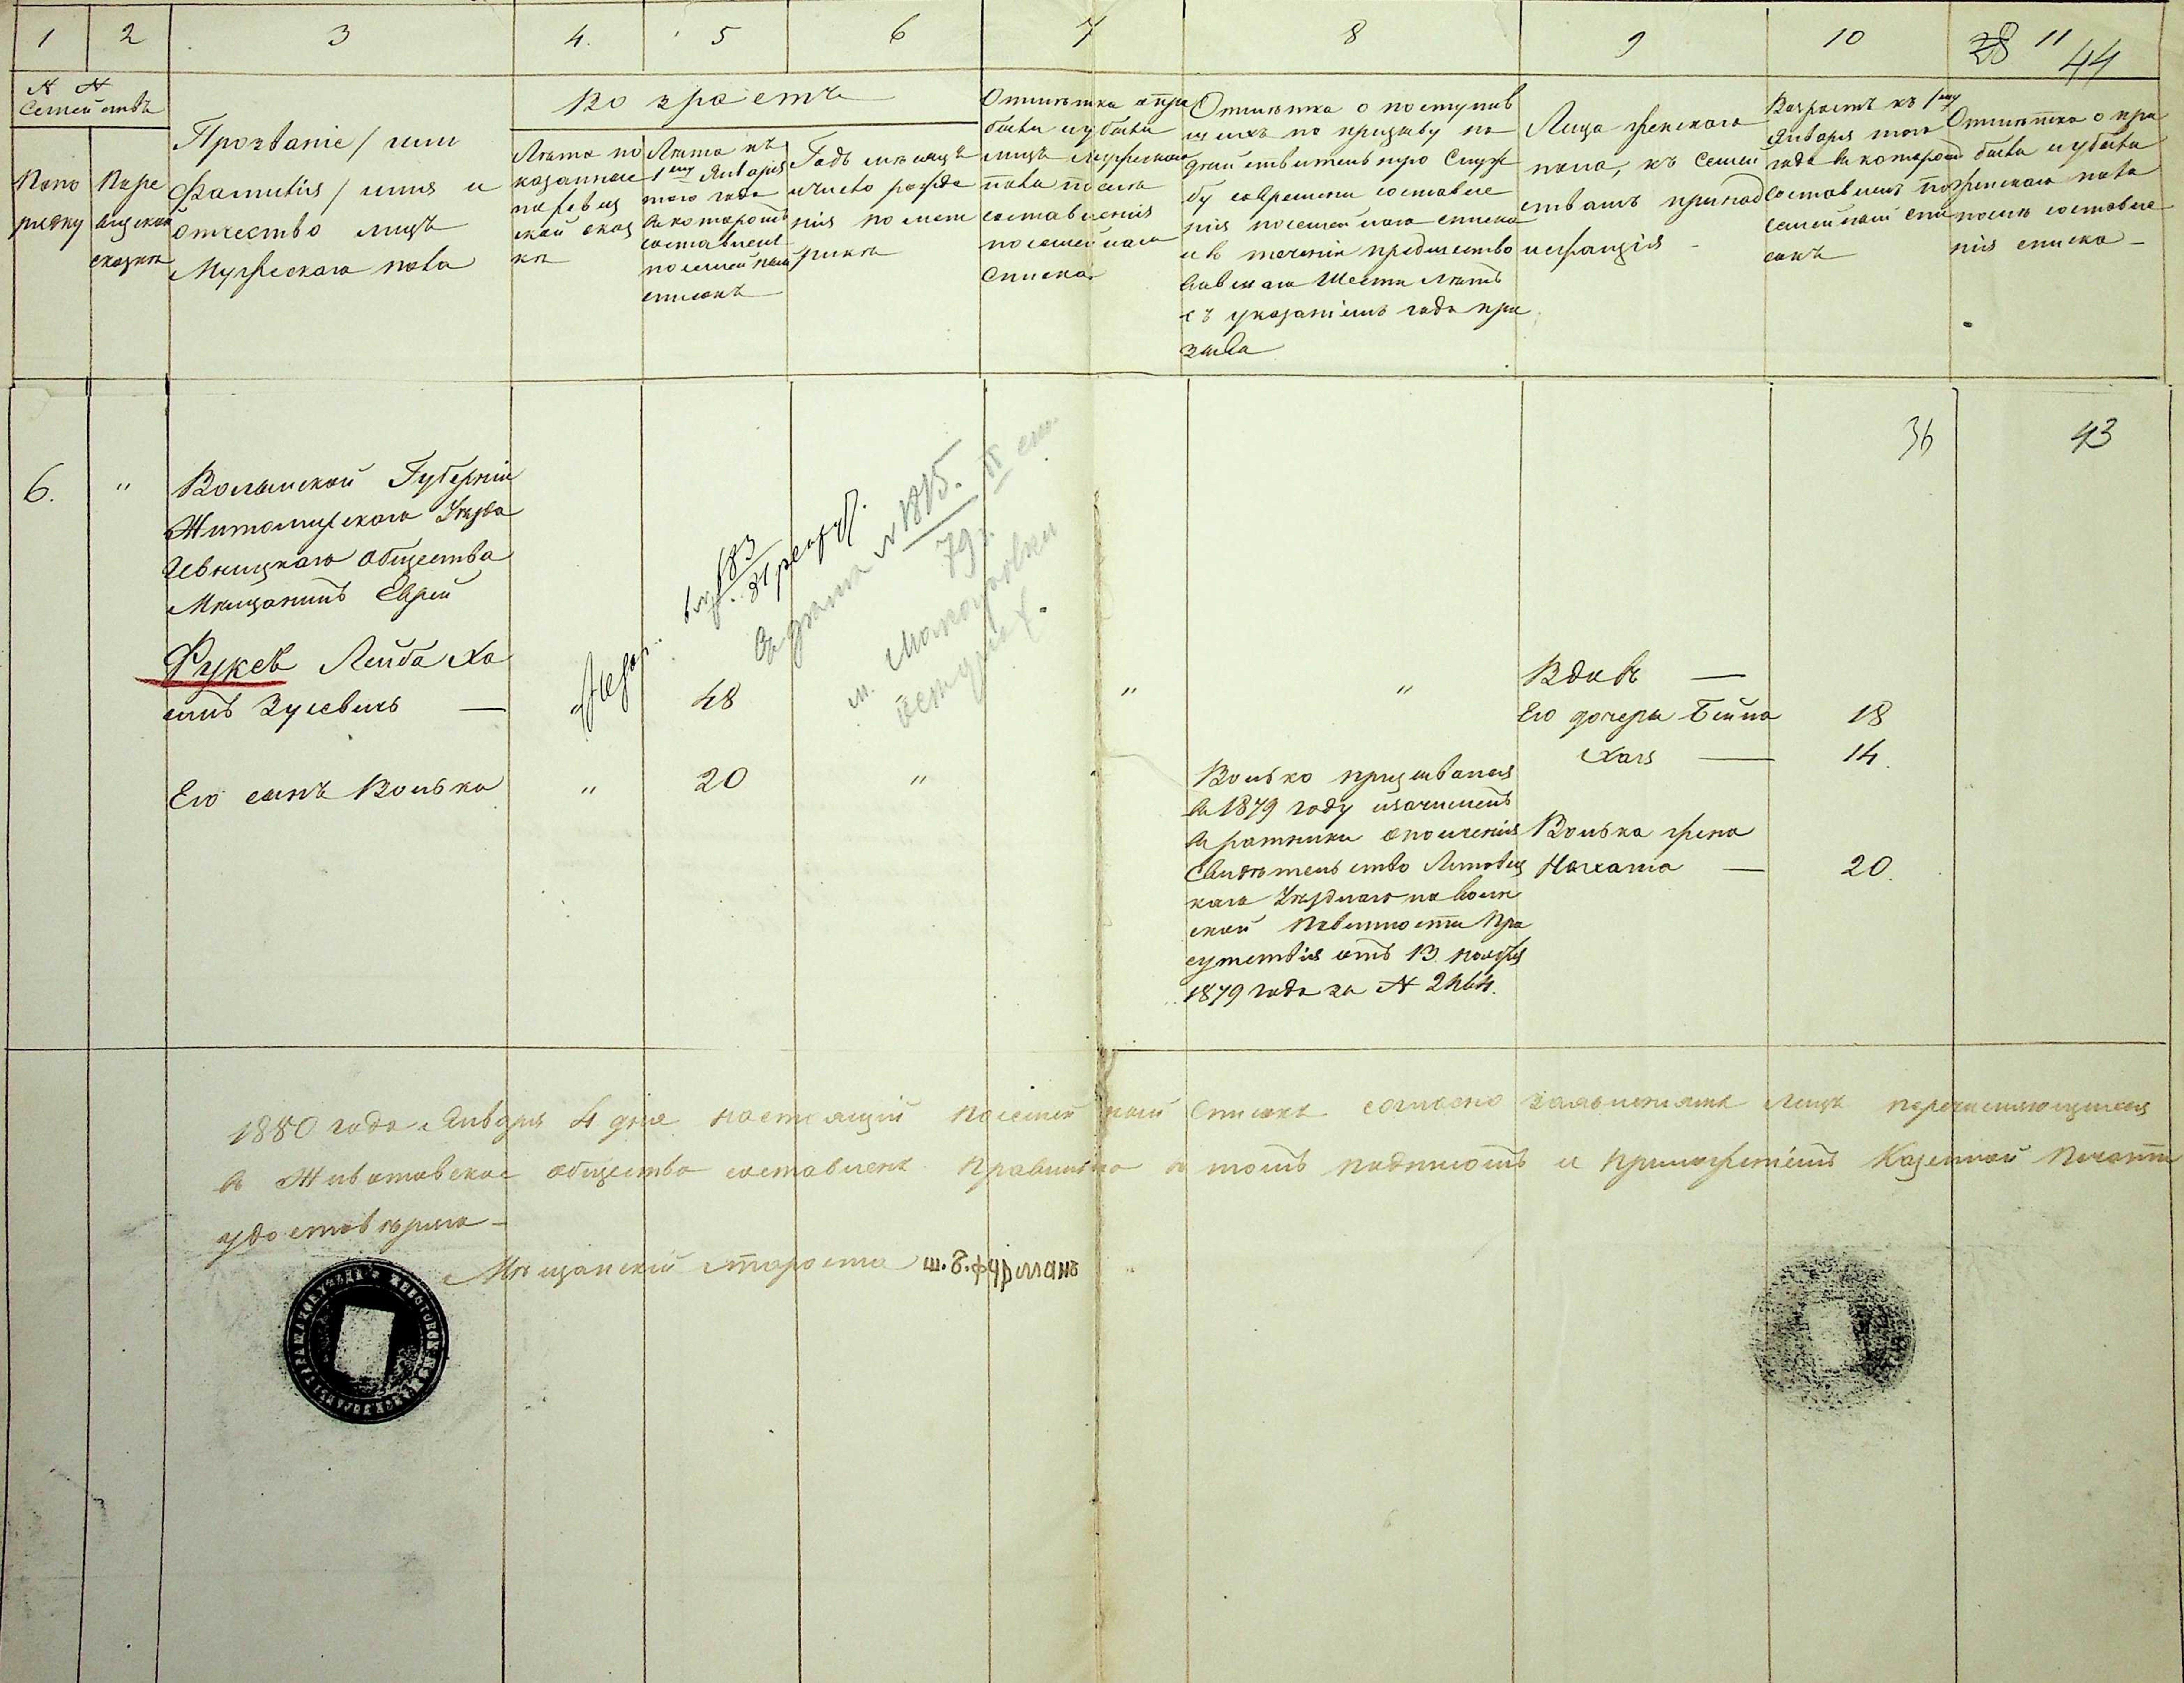 1 2 3 4. 5 6 7 8 9 10 11
28 44
N N
Семействъ
По по
рядку
По ре
визской
сказкѣ
Прозваніе / или
Фамилія / имя и
отчество лицъ
Мужескаго пола
Возрастъ
Лѣта по
казанные
по ревиз
ской сказ
кѣ
Лѣта къ
1му Января
того года
въ которомъ
составленъ
посемейный
списокъ
Годъ мѣсяцъ
и число рожде
нія по мет
рикѣ
Отмѣтка о при
были и убыли
лицъ мужескаго
пола послѣ
составленія
посемейнаго
списка
Отмѣтка о поступив
шихъ по призыву на
дѣйствительную служ
бу со времени составле
нія посемейнаго списка
и въ теченіи предшество
вавшаго шести лѣтъ
съ указаніемъ года при
зыва
Лица женскаго
пола, къ семей
ствамъ принад
лежащія
Возрастъ къ 1му
Января того
года въ которомъ
составленъ по
семейный спи
сокъ
Отмѣтка о при
были и убыли
женскаго пола
послѣ составле
нія списка
36 43
6. "
Волынской Губерніи
Житомирскаго Уѣзда
общества
Мѣщанинъ Еврей
Фуксъ Лейба Ха
имъ Зусевичъ —
48
" "
№ 1815.
79
Вдовъ —
Его дочери Бейла 18
Хая — 14.
Его сынъ Волько " 20 "
Волько призывался
въ 1879 году и зачисленъ
въ ратники ополченія
Свидѣтельство Липовец
каго Уѣзднаго по воин
ской Повинности При
сутствія отъ 13 ноября
1879 года за № 2464.
Волька жена
Нахама — 20.
1880 года Января 4 дня настоящій посемейный списокъ согласно заявленіямъ лицъ перечисляющихся
въ Животовское общество составленъ правильно въ томъ подписомъ и приложеніемъ Казенной Печати
удостовѣряю —
Мѣщанскій староста Ш. Б. Фурманъ